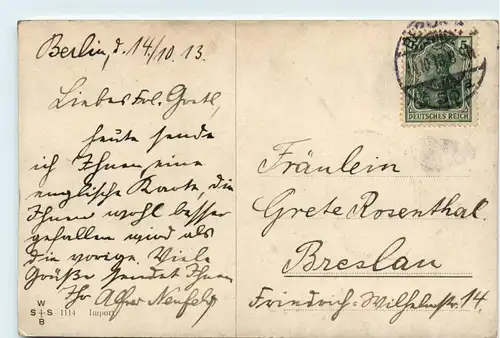 Berlin, d. 14/10. 13.
Liebes Frl. Gretl,
heute sende
ich Ihnen eine
englische Karte, die
Ihnen wohl besser
gefallen wird als
die vorige. Viele
Grüße sendet Ihnen
Ihr Alfred
W
S + S
B
1114 Import
5
DEUTSCHES REICH
Fräulein
Grete Rosenthal.
Breslau
Friedrich-Wilhelmstr. 14.